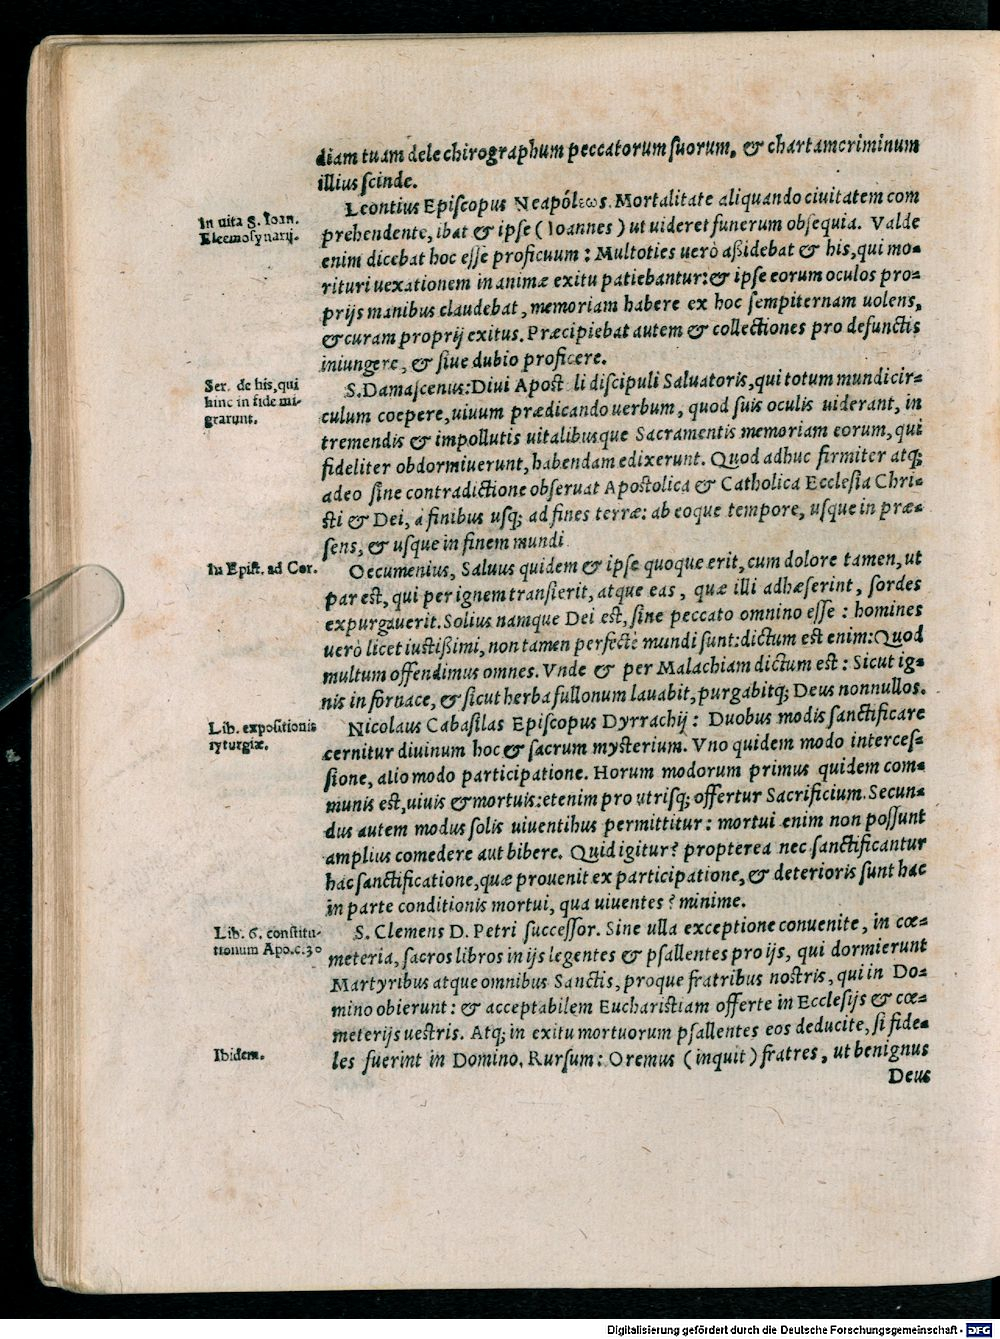 diam tuam dele chirographum peccatorum suorum, & chartam criminum
illius scinde.
In uita S. Ioan.
Eleemosynarij.
Leontius Episcopus Neapóλεως. Mortalitate aliquando ciuitatem com
prehendente, ibat & ipse (Ioannes) ut uideret funerum obsequia. Valde
enim dicebat hoc esse proficuum: Multoties uerò aßidebat & his, qui mo-
rituri uexationem in animæ exitu patiebantur: & ipse eorum oculos pro-
prijs manibus claudebat, memoriam habere ex hoc sempiternam uolens,
& curam proprij exitus. Præcipiebat autem & collectiones pro defunctis
iniungere, & siue dubio proficere.
Ser. de his, qui
hinc in fide mi-
grarunt.
S. Damascenus: Diui Apost li discipuli Saluatoris, qui totum mundi cir-
culum coepere, uiuum prædicando uerbum, quod suis oculis uiderant, in
tremendis & impollutis uitalibusque Sacramentis memoriam eorum, qui
fideliter obdormiuerunt, habendam edixerunt. Quod adhuc firmiter atq;
adeo sine contradictione obseruat Apostolica & Catholica Ecclesia Chri-
sti & Dei, à finibus usq; ad fines terræ: ab eoque tempore, usque in præ-
sens, & usque in finem mundi
In Epist. ad Cor.
Oecumenius, Saluus quidem & ipse quoque erit, cum dolore tamen, ut
par est, qui per ignem transierit, atque eas, quæ illi adhæserint, sordes
expurgauerit. Solius namque Dei est, sine peccato omnino esse: homines
uerò licet iustißimi, non tamen perfectè mundi sunt: dictum est enim: Quod
multum offendimus omnes. Vnde & per Malachiam dictum est: Sicut ig-
nis in fornace, & sicut herba fullonum lauabit, purgabitq; Deus nonnullos.
Lib. expositionis
lyturgiæ.
Nicolaus Cabasilas Episcopus Dyrrachij: Duobus modis sanctificare
cernitur diuinum hoc & sacrum mysterium. Vno quidem modo interces-
sione, alio modo participatione. Horum modorum primus quidem com-
munis est, uiuis & mortuis: etenim pro utrisq; offertur Sacrificium. Secun-
dus autem modus solis uiuentibus permittitur: mortui enim non possunt
amplius comedere aut bibere. Quid igitur? propterea nec sanctificantur
hac sanctificatione, quæ prouenit ex participatione, & deterioris sunt hac
in parte conditionis mortui, qua uiuentes? minime.
Lib. 6. constitu-
tionum Apo. c. 30
S. Clemens D. Petri successor. Sine ulla exceptione conuenite, in cœ-
meteria, sacros libros in ijs legentes & psallentes pro ijs, qui dormierunt
Martyribus atque omnibus Sanctis, proque fratribus nostris, qui in Do-
mino obierunt: & acceptabilem Eucharistiam offerte in Ecclesijs & cœ-
meterijs uestris. Atq; in exitu mortuorum psallentes eos deducite, si fide-
Ibidem.
les fuerint in Domino. Rursum: Oremus (inquit) fratres, ut benignus
Deus
Digitalisierung gefördert durch die Deutsche Forschungsgemeinschaft - DFG